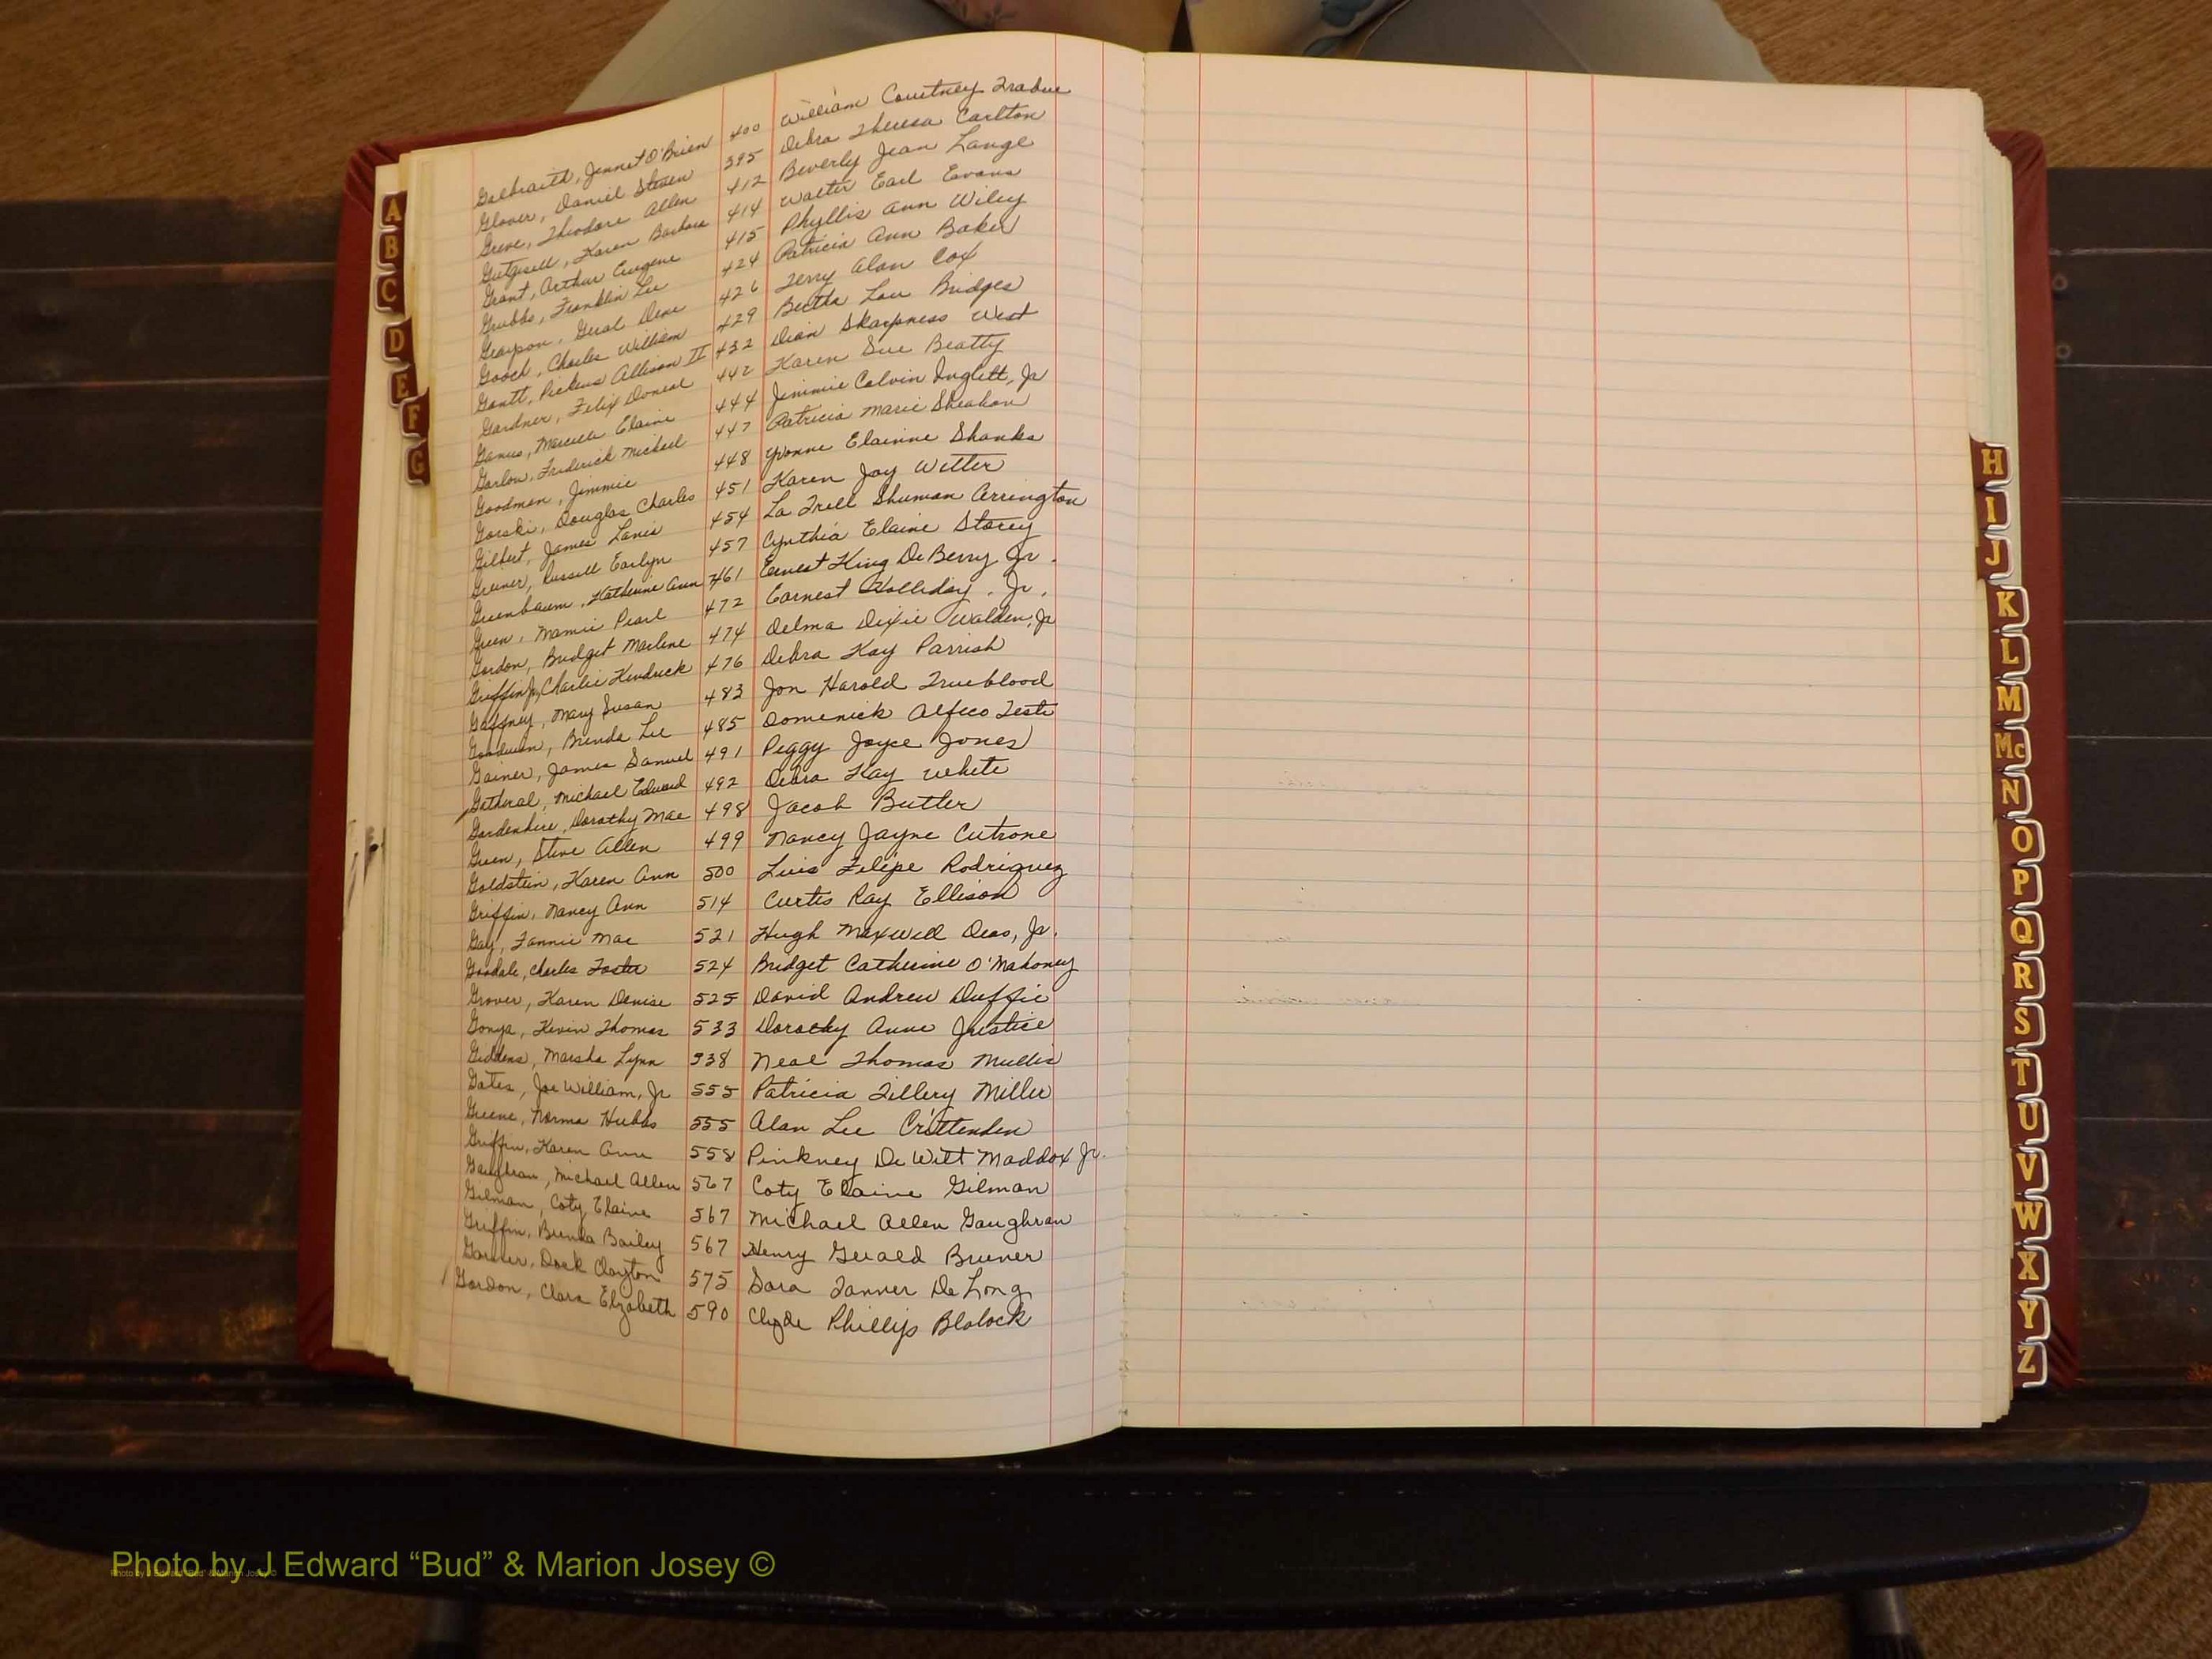 Galbraith, Jennet O'Brien 400 William Courtney Tradue
Glover, Daniel Steven 395 Debra Theresa Carlton
Greve, Theodore Allen 412 Beverly Jean Lange
Gutgsell, Karen Barbara 414 Walter Earl Evans
Grant, Arthur Eugene 415 Phyllis Ann Wiley
Grubbs, Franklin Lee 424 Patricia Ann Baker
Grayson, Geral Dene 426 Terry Alan Cox
Gooch, Charles William 429 Bertha Lou Bridges
Gantt, Pickens Allison II 432 Dian Skarpness West
Gardner, Felix Doneal 442 Karen Sue Beatty
Ganus, Elaine 444 Jimmie Calvin Inglett, Jr
Garlow, Frederick Michael 447 Patricia Marie Sheahan
Goodman, Jimmie 448 Yvonne Elainne Shanks
Gorski, Douglas Charles 451 Karen Joy Witter
Gilbert, James Lanis 454 La Trell Shuman Arrington
Greiner, Russell Earlyn 457 Cynthia Elaine Storey
Greenbaum, Katherine Ann 461 Ernest King DeBerry Jr.
Green, Mamie Pearl 472 Earnest Holliday, Jr.
Gordon, Bridget Marlene 474 Delma Dixie Walden, Jr
Griffin Jr, Charlie Kendrick 476 Debra Kay Parrish
Gaffney, Mary Susan 483 Jon Harold Trueblood
Goodwin, Brenda Lee 485 Domenick Alfeo Testi
Gainer, James Samuel 491 Peggy Joyce Jones
Gatheral, Michael Edward 492 Debra Kay White
Gardenhire, Dorothy Mae 498 Jacob Butler
Green, Steve Allen 499 Nancy Jayne Cutrone
Goldstein, Karen Ann 500 Luis Felipe Rodriguez
Griffin, Nancy Ann 514 Curtis Ray Ellison
Gay, Fannie Mae 521 Hugh Maxwell Deas, Jr.
Goodale, Charles Foster 524 Bridget Catherine O'Mahoney
Grover, Karen Denise 525 David Andrew Duffie
Gonya, Kevin Thomas 533 Dorothy Anne Justice
Giddens, Marsha Lynn 538 Neal Thomas Mullis
Gates, Joe William, Jr 555 Patricia Tillery Miller
Greene, Norma Hubbs 555 Alan Lee Crittenden
Griffin, Karen Ann 558 Pinkney DeWitt Maddox Jr.
Gaughran, Michael Allen 567 Coty Elaine Gilman
Gilman, Coty Elaine 567 Michael Allen Gaughran
Griffin, Brenda Bailey 567 Henry Gerald Bruner
Garner, Dock Clayton 575 Sara Tanner DeLong
Gordon, Clara Elzabeth 590 Clyde Phillips Blalock
A
B
C
D
E
F
G
H
I
J
K
L
M
Mc
N
O
P
Q
R
S
T
U
V
W
X
Y
Z
Photo by J Edward “Bud” & Marion Josey ©
Photo by J Edward “Bud” & Marion Josey ©